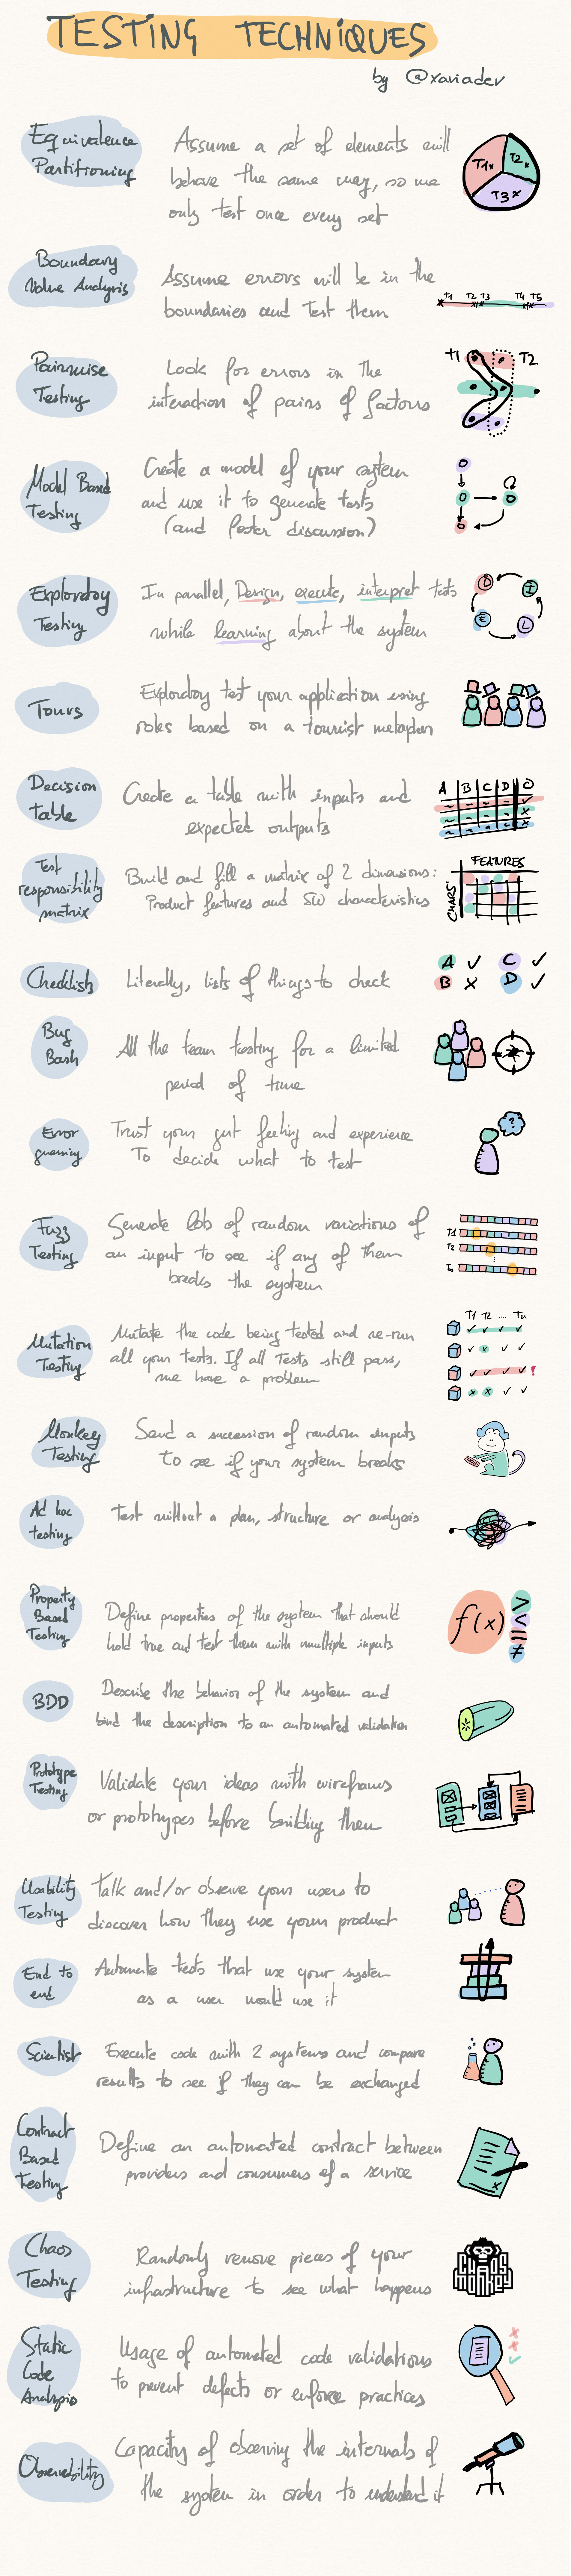 TESTING TECHNIQUES
by @xariadev
Equivalence
Partitioning
Assume a set of elements will
behave the same way, so we
only test once every set
T1x
T2x
T3x
Boundary
Value Analysis
Assume errors will be in the
boundaries and test them
T1 T2 T3 T4 T5
Pairwise
Testing
Look for errors in the
interaction of pairs of factors
T1 T2
Model Based
Testing
Create a model of your system
and use it to generate tests
(and foster discussion)
Exploratory
Testing
In parallel, Design, execute, interpret tests
while learning about the system
D I
E L
Tours
Exploratory test your application using
roles based on a tourist metaphor
Decision
table
Create a table with inputs and
expected outputs
A B C D O
Test
responsibility
matrix
Build and fill a matrix of 2 dimensions:
Product features and SW characteristics
FEATURES
CHARS
Checklists
Literally, lists of things to check
A ✓ C ✓
B x D ✓
Bug
Bash
All the team testing for a limited
period of time
Error
guessing
Trust your gut feeling and experience
To decide what to test
?
Fuzz
Testing
Generate lots of random variations of
an input to see if any of them
breaks the system
T1
T2
Tn
Mutation
Testing
Mutate the code being tested and re-run
all your tests. If all tests still pass,
we have a problem
T1 T2 .... Tn
✓ ✓ ✓ ✓
✓ x ✓ ✓
✓ ✓ ✓ ✓ !
x x ✓ ✓
Monkey
Testing
Send a succession of random inputs
to see if your system breaks
Ad hoc
testing
Test without a plan, structure or analysis
Property
Based
Testing
Define properties of the system that should
hold true and test them with multiple inputs
f(x)
>
<
=
≠
BDD
Describe the behavior of the system and
bind the description to an automated validation
Prototype
Testing
Validate your ideas with wireframes
or prototypes before building them
Usability
Testing
Talk and/or observe your users to
discover how they use your product
End to
end
Automate tests that use your system
as a user would use it
Scientist
Execute code with 2 systems and compare
results to see if they can be exchanged
Contract
Based
Testing
Define an automated contract between
providers and consumers of a service
Chaos
Testing
Randomly remove pieces of your
infrastructure to see what happens
CHAOS
MONKEY
Static
Code
Analysis
Usage of automated code validations
to prevent defects or enforce practices
Observability
Capacity of observing the internals of
the system in order to understand it